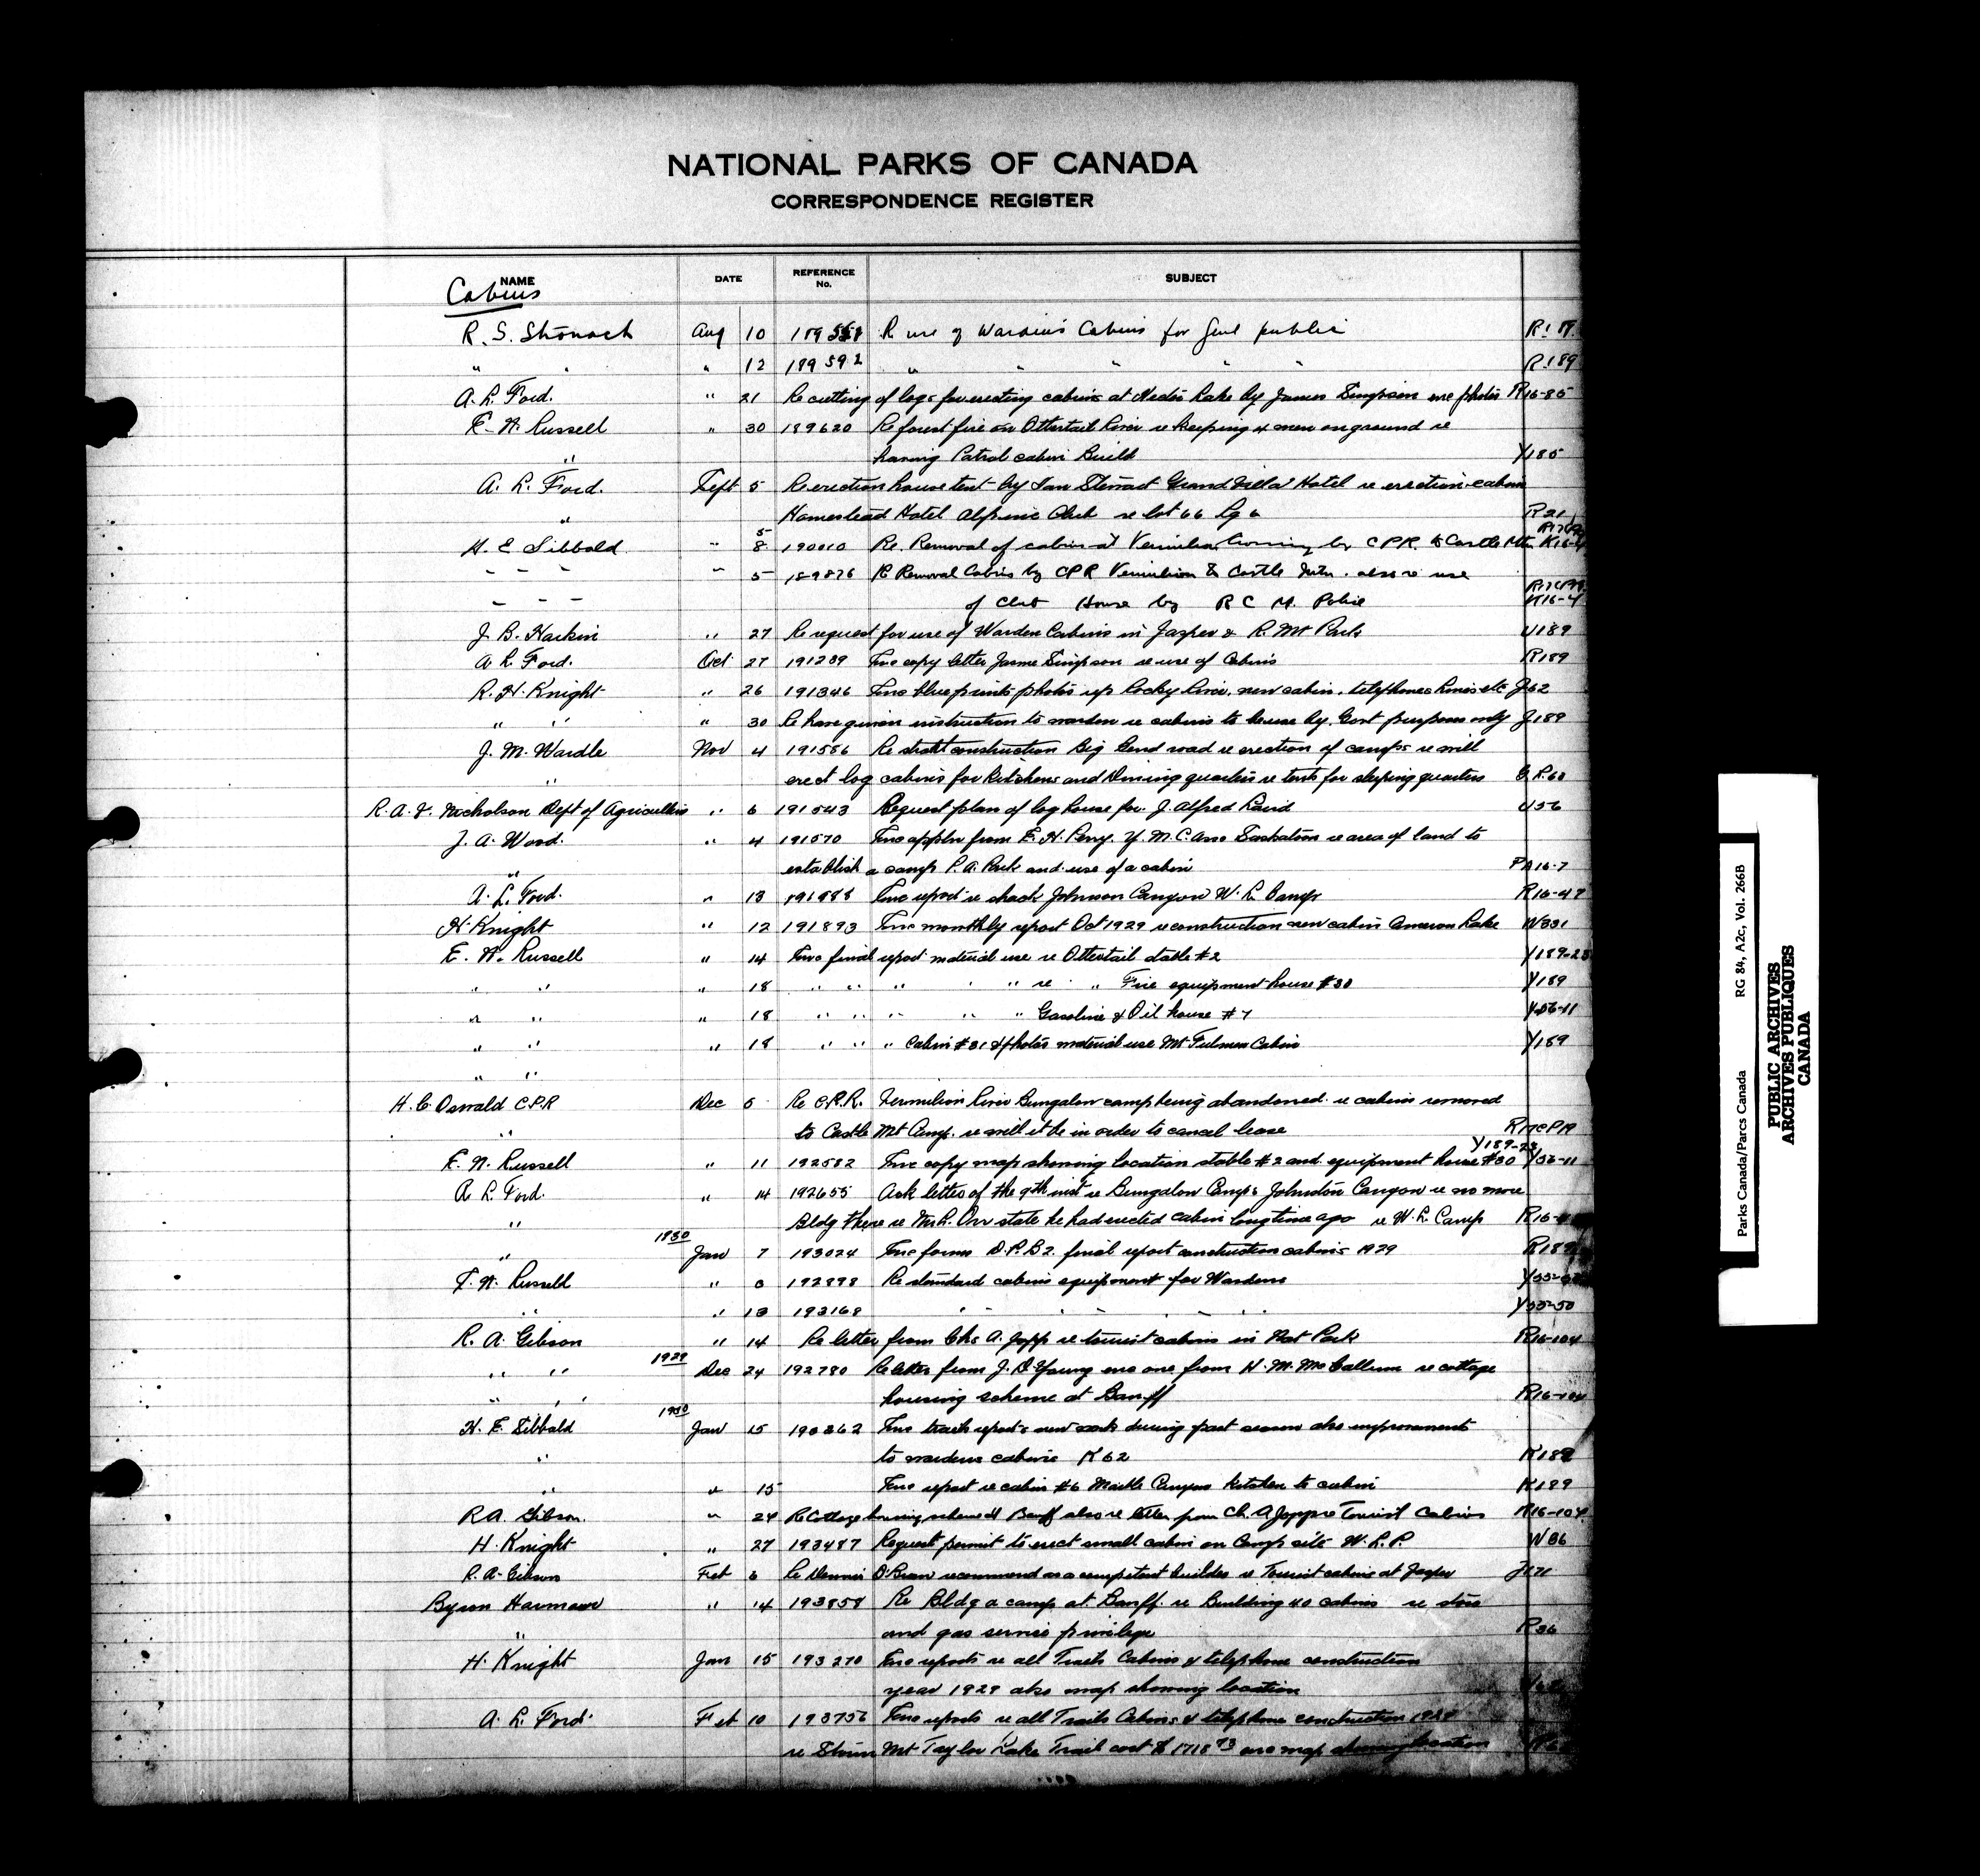 NATIONAL PARKS OF CANADA
CORRESPONDENCE REGISTER
NAME DATE REFERENCE No. SUBJECT
Cabins
R. S. Stronach Aug 10 R use of Wardens Cabins for Genl public
" " " 12 189592 " " " "  R189
A. L. Ford. " 21 Re cutting of logs for erecting cabins at Hector Lake by James Simpson enc photos R16-85
E. N. Russell " 30 189620 Re forest fire on Ottertail River re keeping 4 men on ground re
" having Patrol cabin Build Y185
A. L. Ford. Sept 5 Re erection house tent by Grand Hotel re erection cabin
" Homestead Hotel Alpine Club re lot 66 R21
H. E. Sibbald " 8 190010 Re. Removal of cabins at Vermilion Crossing by C P R. to Castle Mtn. K16-4
" " " " 5 189876 Re Removal Cabins by CPR Vermilion & Castle Mtn. also re use
" " " of Club House by R C M. Police K16-4
J. B. Harkin " 27 Re request for use of Warden Cabins in Jasper & R. Mt Park U189
A. L. Ford. Oct 27 191239 Enc copy letter Jamme Simpson re use of Cabins R189
R. H. Knight " 26 191346 Enc blue prints photos up Rocky River, new cabin, telephone lines etc J62
" " " 30 Re have given instruction to warden re cabins to be use by Govt purposes only J189
J. M. Wardle Nov 4 191586 Re construction Big Bend road re erection of camps re will
" erect log cabins for Kitchens and Dining quarters re tents for sleeping quarters
R. A. J. Nicholson Dept of Agriculture " 6 191543 Request plan of log house for J. Alfred Laird U56
J. A. Wood. " 4 191570 Enc appln from E. H. Perry. Y. M. C. Asso Saskatoon re area of land to
" establish a camp P. A. Park and use of a cabin PA16-7
A. L. Ford. " 13 Enc report re shack Johnson Canyon W. L. Camp R16-47
H. Knight " 12 191893 Enc monthly report Oct 1929 re construction new cabin Cameron Lake W331
E. N. Russell " 14 Enc final report material use re Ottertail stable #2 Y189-23
" " " 18 " " " " " re " Fire equipment house #30 Y189
" " " 18 " " " " " Gasoline & Oil house #7 Y56-11
" " " 18 " " " Cabin #31 & photos material use Mt Cabin Y189
" "
H. C. Oswald C.P.R Dec 5 Re C.P.R. Vermilion River Bungalow camp being abandoned re cabins removed
" to Castle Mt Camp. re will it be in order to cancel lease
Y189-23
E. N. Russell " 11 192582 Enc copy map showing location stable #2 and equipment house #30 Y56-11
A. L. Ford. " 14 192655 Ack letter of the 9th inst re Bungalow Camps Johnston Canyon re no more
" Bldg there re Mr L. Orr state he had erected cabin long time ago re W. L. Camp
1930
" Jan 7 193024 Enc forms D.P.B2. final report construction cabins 1929 R189
E. N. Russell " 192898 Re standard cabins equipment for Wardens
" " 13 193168 " " " " " Y55-50
R. A. Gibson " 14 Re letter from Chs A. Jopp re tourist cabins in Nat Park R16-104
1929
" " Dec 24 192780 Re letter from J. D Young enc one from H. M. McCallum re cottage
" " " housing scheme at Banff R16-104
1930
H. E. Sibbald Jan 15 193362 Enc trails reports new work during past season also improvements
" to wardens cabins K62 K189
" " 15 Enc report re cabin #6 Marble Canyon kitchen to cabin K189
R.A. Gibson " 24 Re Cottage housing scheme at Banff also re letter from Ch. A Jopp re Tourist Cabins R16-104
H. Knight " 27 193487 Request permit to erect small cabin on Camp site W. L. P. W36
R. A. Gibson Feb 6 Re Dennis O'Brien recommend as a competent builder re Tourist cabins at Jasper
Byron Harmon " 14 193858 Re Bldg a camp at Banff. re Building 40 cabins re store
" and gas service privilege R36
H. Knight Jan 15 193270 Enc reports re all Trails Cabins & telephone construction
year 1929 also map showing location
A. L. Ford Feb 10 193756 Enc reports re all Trails Cabins & telephone construction 1929
re Mt Taylor Lake Trail cost $1718.73 enc map showing location
Parks Canada/Parcs Canada RG 84, A2c, Vol. 266B
PUBLIC ARCHIVES
ARCHIVES PUBLIQUES
CANADA